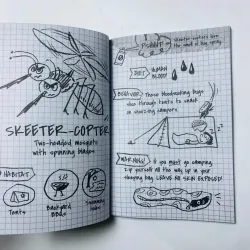 SKEETER-COPTER
Two-headed mosquito
with spinning blades
HABITAT
Tents
Backyard
BBQs
Swimming
holes
love
the smell of bug spray
DIET
HUMAN
BLOOD
BEHAVIOR These bloodsucking bugs
slice through tents to snack
on snoozing campers.
WARNING! If you must go camping,
zip yourself all the way up in your
sleeping bag. LEAVE NO SKIN EXPOSED!